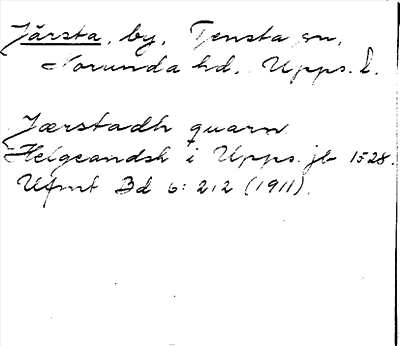 Järsta, by, Tensta sn,
Norunda hd, Upps. l.
Jærstadh quarn
Helgeandsh i Upps. jb 1528.
Ufmt Bd 6: 212 (1911).